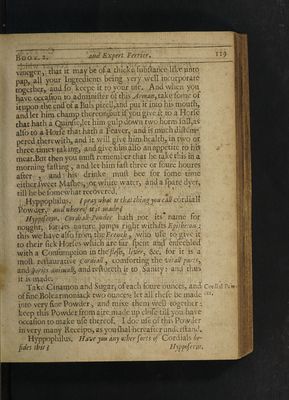 BOOK. 2. and Expert Ferrier. 119
vineger, that it may be of a thicke substance like unto
pap, all your Ingredients being very well incorporate
together, and so keepe it to your use. And when you
have occasion to administer of this Arman, take some of
it upon the end of a Buls pizell, and put it into his mouth,
and let him champ thereon; but if you give it to a Horse
that hath a Quinsie, let him gulp down two hornfuls, as
also to a Horse that hath a Feaver, and is much distem-
pered therewith, and it will give him health, in two or
three times taking, and give him also an appetite to his
meat. But then you must remember that he take this in a
morning fasting, and let him fast three or foure houres
after, and his drinke must bee for some time
either sweet Mashes, or white water, and a spare dyet,
till he be somewhat recovered.
Hippophilus. I pray what is that thing you call cordiall
Powder, and whereof is it made?
Hipposerus. Cordiall-Powder hath not its name for
nought, for its nature jumps right with its Epitheton;
this we have also from the French, who use to give it
to their sick Horses which are far spent and enfeebled
with a Consumption in the flesh, liver, &c. for it is a
most restaurative Cordiall, comforting the vitall parts,
and spirits animall, and restoreth it to Sanity: and thus
it is made.
Take Cinamon and Sugar, of each foure ounces, and Cordiall Pow-
of fine Bolearmoniack two ounces: let all these be made der.
into very fine Powder, and mixe them well together:
keep this Powder from aire made up close till you have
occasion to make use thereof. I doe use of this Powder
in very many Receipts, as you shal hereafter understand.
Hyppophilus. Have you any other sorts of Cordials be-
sides this?
Hipposerus.